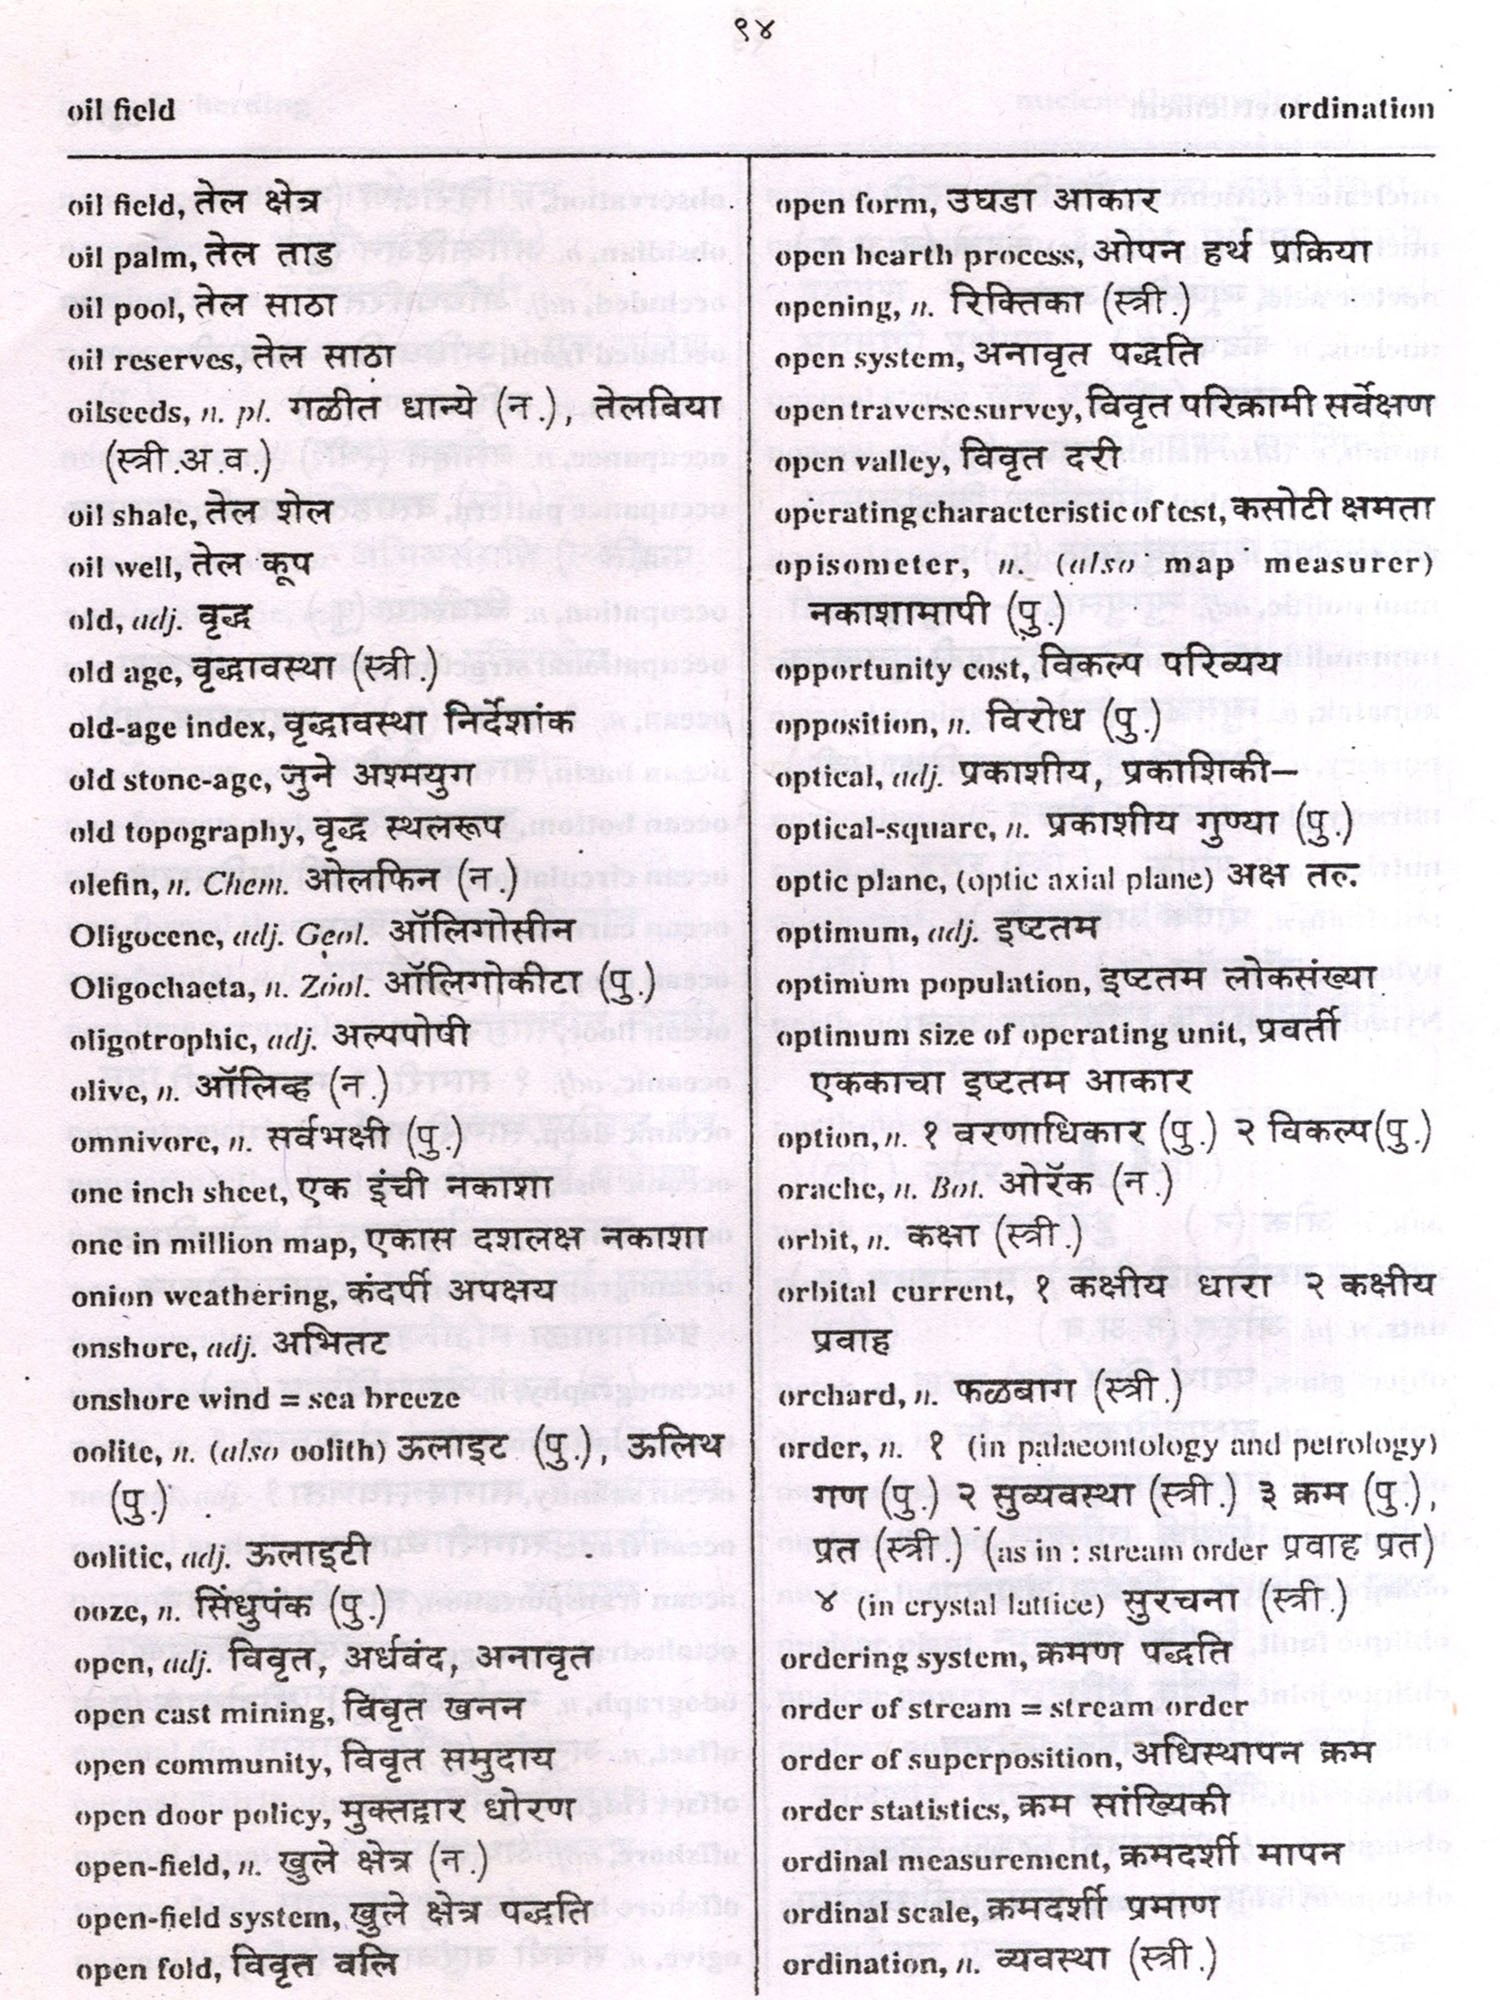 ९४
oil field
ordination
oil field, तेल क्षेत्र
oil palm, तेल ताड
oil pool, तेल साठा
oil reserves, तेल साठा
oilseeds, n. pl. गळीत धान्ये (न.), तेलबिया
(स्त्री.अ.व.)
oil shale, तेल शेल
oil well, तेल कूप
old, adj. वृद्ध
old age, वृद्धावस्था (स्त्री.)
old-age index, वृद्धावस्था निर्देशांक
old stone-age, जुने अश्मयुग
old topography, वृद्ध स्थलरूप
olefin, n. Chem. ओलफिन (न.)
Oligocene, adj. Geol. ऑलिगोसीन
Oligochaeta, n. Zool. ऑलिगोकीटा (पु.)
oligotrophic, adj. अल्पपोषी
olive, n. ऑलिव्ह (न.)
omnivore, n. सर्वभक्षी (पु.)
one inch sheet, एक इंची नकाशा
one in million map, एकास दशलक्ष नकाशा
onion weathering, कंदर्पी अपक्षय
onshore, adj. अभितट
onshore wind = sea breeze
oolite, n. (also oolith) ऊलाइट (पु.), ऊलिथ
(पु.)
oolitic, adj. ऊलाइटी
ooze, n. सिंधुपंक (पु.)
open, adj. विवृत, अर्धवंद, अनावृत
open cast mining, विवृत खनन
open community, विवृत समुदाय
open door policy, मुक्तद्वार धोरण
open-field, n. खुले क्षेत्र (न.)
open-field system, खुले क्षेत्र पद्धति
open fold, विवृत वलि
open form, उघडा आकार
open hearth process, ओपन हर्थ प्रक्रिया
opening, n. रिक्तिका (स्त्री.)
open system, अनावृत पद्धति
open traverse survey, विवृत परिक्रामी सर्वेक्षण
open valley, विवृत दरी
operating characteristic of test, कसोटी क्षमता
opisometer, n. (also map measurer)
नकाशामापी (पु.)
opportunity cost, विकल्प परिव्यय
opposition, n. विरोध (पु.)
optical, adj. प्रकाशीय, प्रकाशिकी–
optical-square, n. प्रकाशीय गुण्या (पु.)
optic plane, (optic axial plane) अक्ष तल
optimum, adj. इष्टतम
optimum population, इष्टतम लोकसंख्या
optimum size of operating unit, प्रवर्ती
एककाचा इष्टतम आकार
option, n. १ वरणाधिकार (पु.) २ विकल्प(पु.)
orache, n. Bot. ओरॅक (न.)
orbit, n. कक्षा (स्त्री.)
orbital current, १ कक्षीय धारा २ कक्षीय
प्रवाह
orchard, n. फळबाग (स्त्री.)
order, n. १ (in palaeontology and petrology)
गण (पु.) २ सुव्यवस्था (स्त्री.) ३ क्रम (पु.),
प्रत (स्त्री.) (as in : stream order प्रवाह प्रत)
४ (in crystal lattice) सुरचना (स्त्री.)
ordering system, क्रमण पद्धति
order of stream = stream order
order of superposition, अधिस्थापन क्रम
order statistics, क्रम सांख्यिकी
ordinal measurement, क्रमदर्शी मापन
ordinal scale, क्रमदर्शी प्रमाण
ordination, n. व्यवस्था (स्त्री.)